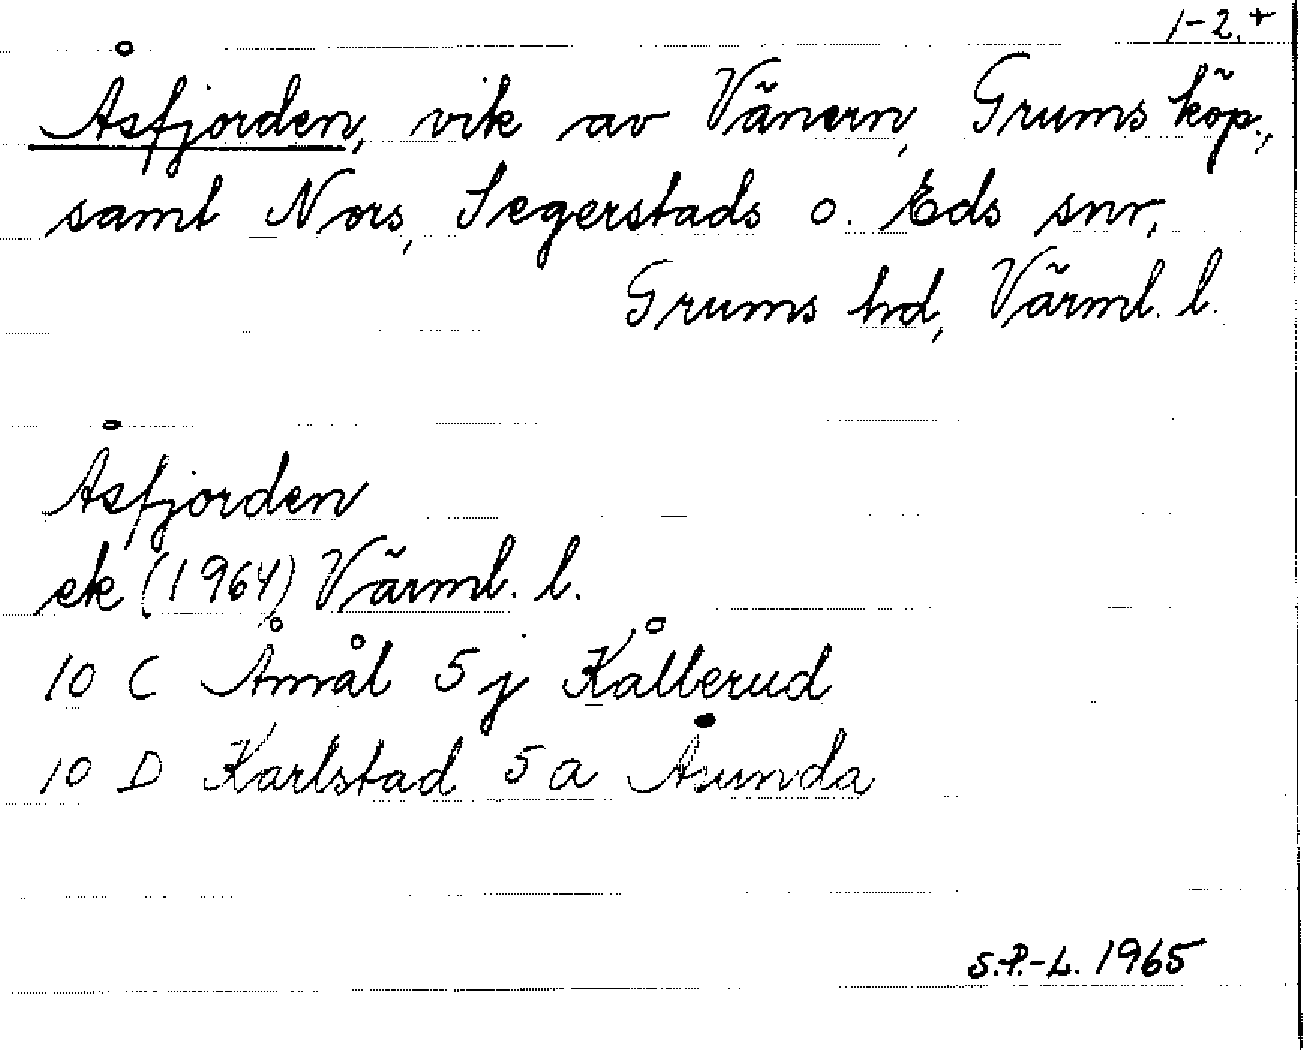 1-2.+
Åsfjorden, vik av Vänern, Grums köp.,
samt Nors, Segerstads o. Eds snr,
Grums hd, Värml. l.
Åsfjorden
ek (1964) Värml. l.
10 C Åmål 5 j Kållerud
10 D Karlstad 5 a Åsunda
S.P.-L. 1965